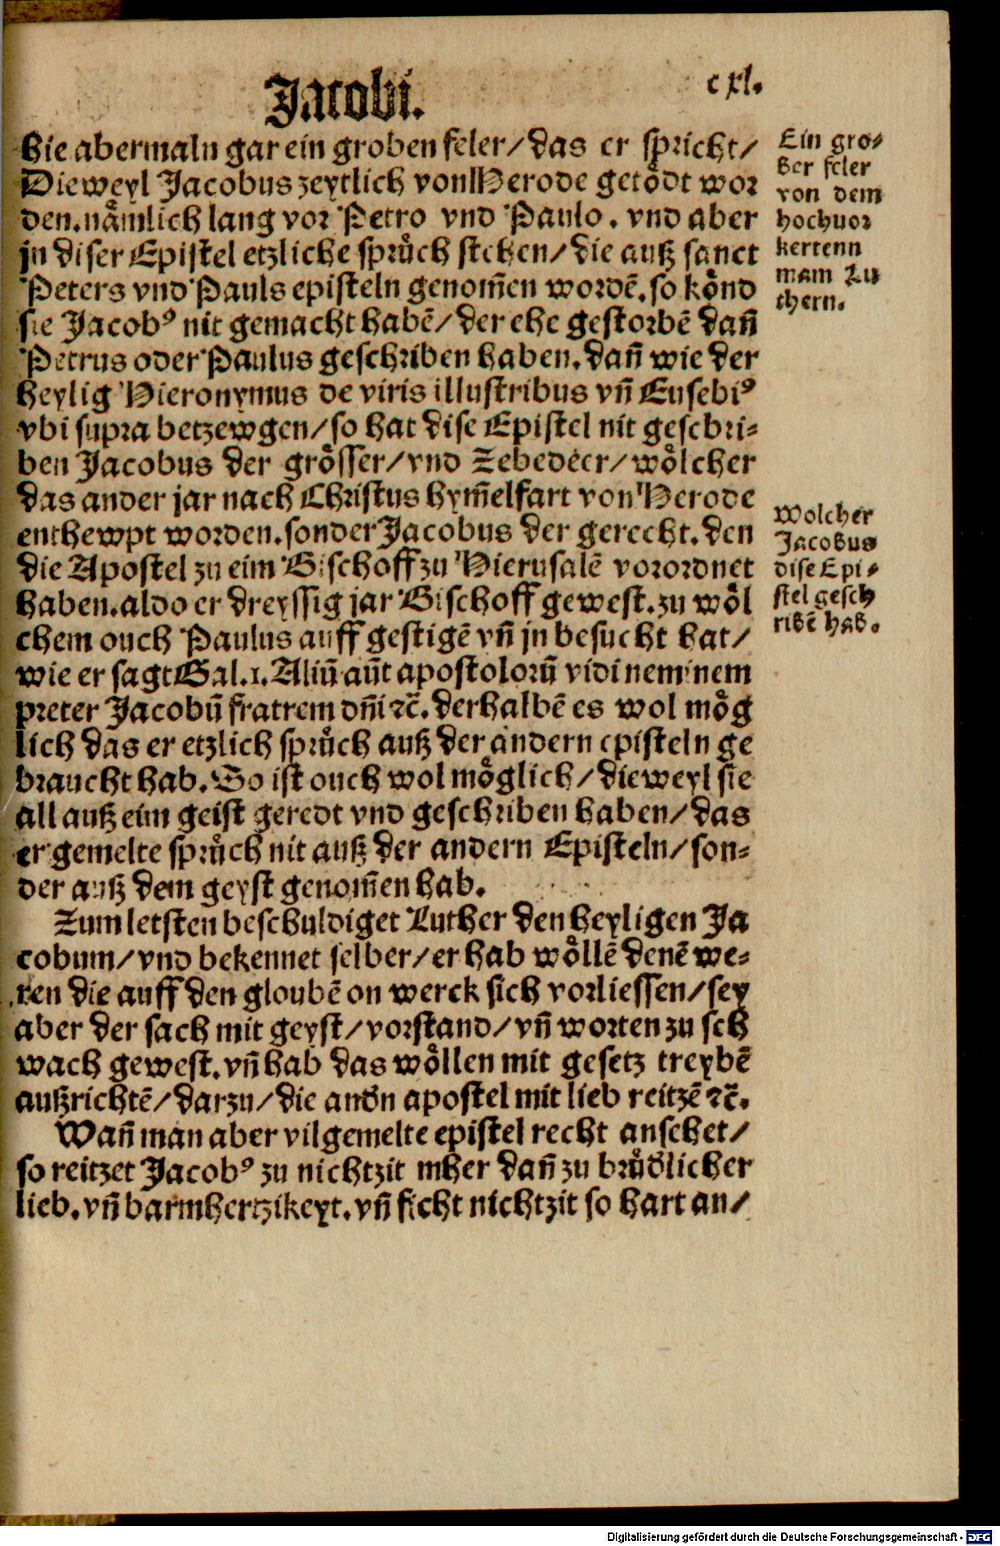 Jacobi.
cxl.
hie abermaln gar ein groben feler/ das er spricht/
Dieweyl Jacobus zeytlich von Herode getoͤdt wor
den. naͤmlich lang vor Petro vnd Paulo. vnd aber
jn diser Epistel etzliche spruͤch stehen/ die auß sanct
Peters vnd Pauls episteln genom̄en wordē. so koͤnd
sie Jacobꝰ nit gemacht habē/ der ehe gestorbē dañ
Petrus oder Paulus geschriben haben. dañ wie der
heylig Hieronymus de viris illustribus vñ Eusebiꝰ
vbi supra betzewgen/ so hat dise Epistel nit geschri-
ben Jacobus der groͤsser/ vnd Zebedeer/ woͤlcher
das ander jar nach Christus hym̄elfart von Herode
enthewpt worden. sonder Jacobus der gerecht. den
die Apostel zu eim Bischoff zu Hierusalē vorordnet
haben. aldo er dreyssig jar Bischoff gewest. zu woͤl
chem ouch Paulus auff gestigē vñ jn besucht hat/
wie er sagt Gal. 1. Aliū aūt apostolorū vidi neminem
preter Jacobū fratrem dñi ⁊c̄. derhalbē es wol moͤg
lich das er etzlich spruͤch auß der andern episteln ge
braucht hab. So ist ouch wol moͤglich/ dieweyl sie
all auß eim geist geredt vnd geschriben haben/ das
er gemelte spruͤch nit auß der andern Episteln/ son-
der auß dem geyst genom̄en hab.
Zum letsten beschuldiget Luther den heyligen Ja
cobum/ vnd bekennet selber/ er hab woͤllē denē we-
ren die auff den gloubē on werck sich vorliessen/ sey
aber der sach mit geyst/ vorstand/ vñ worten zu sch
wach gewest. vñ hab das woͤllen mit gesetz treybē
außrichtē/ darzu/ die andn apostel mit lieb reitzē ⁊c̄.
Wañ man aber vilgemelte epistel recht ansehet/
so reitzet Jacobꝰ zu nichtzit mher dañ zu bruͤdlicher
lieb. vñ barmhertzikeyt. vñ ficht nichtzit so hart an/
Ein gro-
ber feler
von dem
hochuor
kertenn
mam Lu
thern.
Wolcher
Jacobus
dise Epi-
stel gesch
ribē hab.
Digitalisierung gefördert durch die Deutsche Forschungsgemeinschaft - DFG